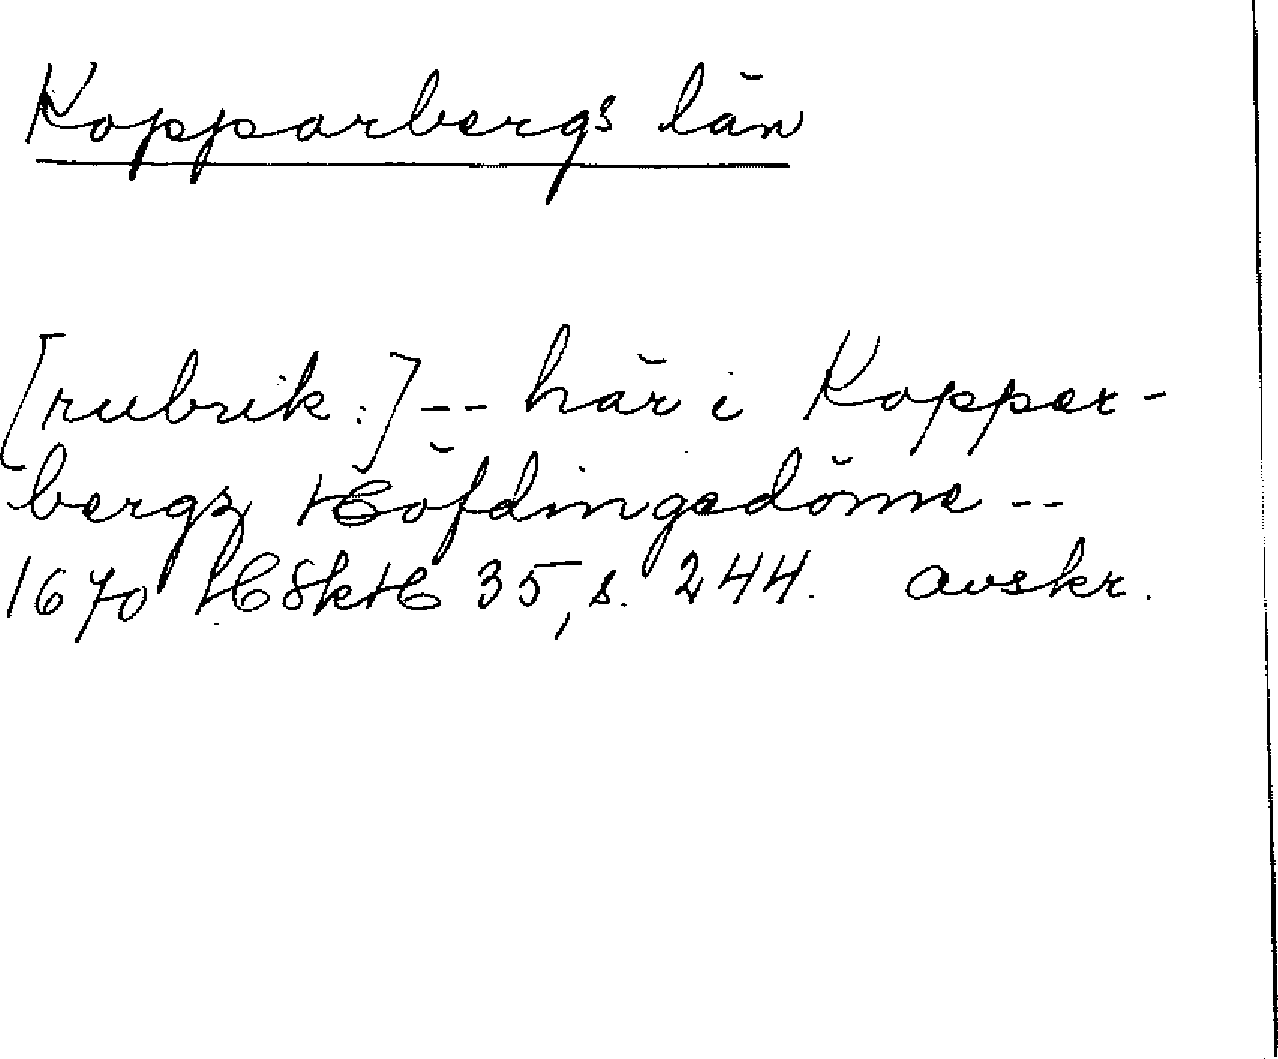 Kopparbergs län
[rubrik:] -- här i Kopper-
bergz Höfdingedöme --
1670 HSkH 35, s. 244. avskr.